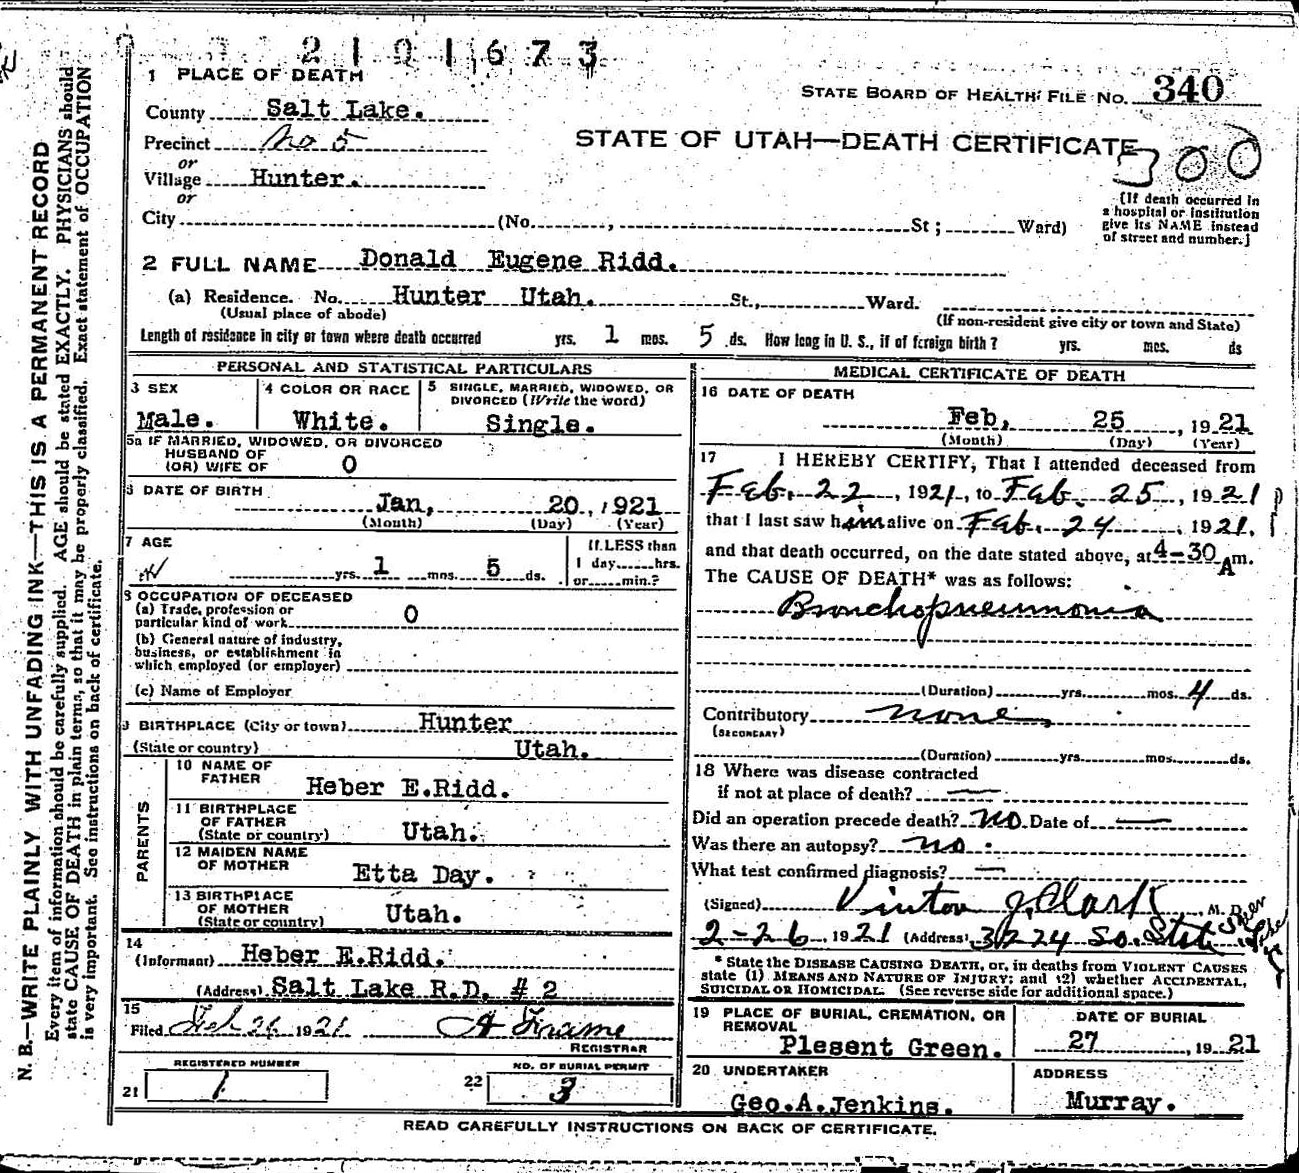 2101673
1 PLACE OF DEATH
STATE BOARD OF HEALTH FILE NO. 340
County Salt Lake.
Precinct No 5
STATE OF UTAH—DEATH CERTIFICATE
300
or
Village Hunter.
or
City (No. , St ; Ward)
[If death occurred in
a hospital or institution
give its NAME instead
of street and number.]
2 FULL NAME Donald Eugene Ridd.
(a) Residence. No. Hunter Utah. St., Ward.
(Usual place of abode)
(If non-resident give city or town and State)
Length of residence in city or town where death occurred yrs. 1 mos. 5 ds. How long in U. S., if of foreign birth? yrs. mos. ds
PERSONAL AND STATISTICAL PARTICULARS
3 SEX
Male.
4 COLOR OR RACE
White.
5 SINGLE, MARRIED, WIDOWED, OR
DIVORCED (Write the word)
Single.
5a IF MARRIED, WIDOWED, OR DIVORCED
HUSBAND OF
(OR) WIFE OF 0
6 DATE OF BIRTH
Jan, 20, 1921
(Month) (Day) (Year)
7 AGE
yrs. 1 mos. 5 ds.
If LESS than
1 day hrs.
or min.?
8 OCCUPATION OF DECEASED
(a) Trade, profession or
particular kind of work 0
(b) General nature of industry,
business, or establishment in
which employed (or employer)
(c) Name of Employer
9 BIRTHPLACE (City or town) Hunter
(State or country) Utah.
PARENTS
10 NAME OF
FATHER Heber E.Ridd.
11 BIRTHPLACE
OF FATHER
(State or country) Utah.
12 MAIDEN NAME
OF MOTHER Etta Day.
13 BIRTHPLACE
OF MOTHER
(State or country) Utah.
14
(Informant) Heber E.Ridd.
(Address) Salt Lake R.D. # 2
15
Filed Feb 26 1921 A Frame
REGISTRAR
REGISTERED NUMBER
21 1
NO. OF BURIAL PERMIT
22 3
MEDICAL CERTIFICATE OF DEATH
16 DATE OF DEATH
Feb, 25, 1921
(Month) (Day) (Year)
17 I HEREBY CERTIFY, That I attended deceased from
Feb. 22, 1921, to Feb. 25, 1921
that I last saw him alive on Feb. 24, 1921,
and that death occurred, on the date stated above, at 4-30 Am.
The CAUSE OF DEATH* was as follows:
Bronchopneumonia
(Duration) yrs. mos. 4 ds.
Contributory none
(SECONDARY)
(Duration) yrs. mos. ds.
18 Where was disease contracted
if not at place of death? —
Did an operation precede death? no Date of —
Was there an autopsy? no.
What test confirmed diagnosis? —
(Signed) Vinton J. Clark, M. D.
2-26, 1921 (Address) 3224 So. State
* State the DISEASE CAUSING DEATH, or, in deaths from VIOLENT CAUSES
state (1) MEANS AND NATURE OF INJURY; and (2) whether ACCIDENTAL,
SUICIDAL OR HOMICIDAL. (See reverse side for additional space.)
19 PLACE OF BURIAL, CREMATION, OR
REMOVAL
Plesent Green.
DATE OF BURIAL
27, 1921
20 UNDERTAKER
Geo.A.Jenkins.
ADDRESS
Murray.
READ CAREFULLY INSTRUCTIONS ON BACK OF CERTIFICATE.
N. B.—WRITE PLAINLY WITH UNFADING INK—THIS IS A PERMANENT RECORD
Every item of information should be carefully supplied. AGE should be stated EXACTLY. PHYSICIANS should
state CAUSE OF DEATH in plain terms, so that it may be properly classified. Exact statement of OCCUPATION
is very important. See instructions on back of certificate.